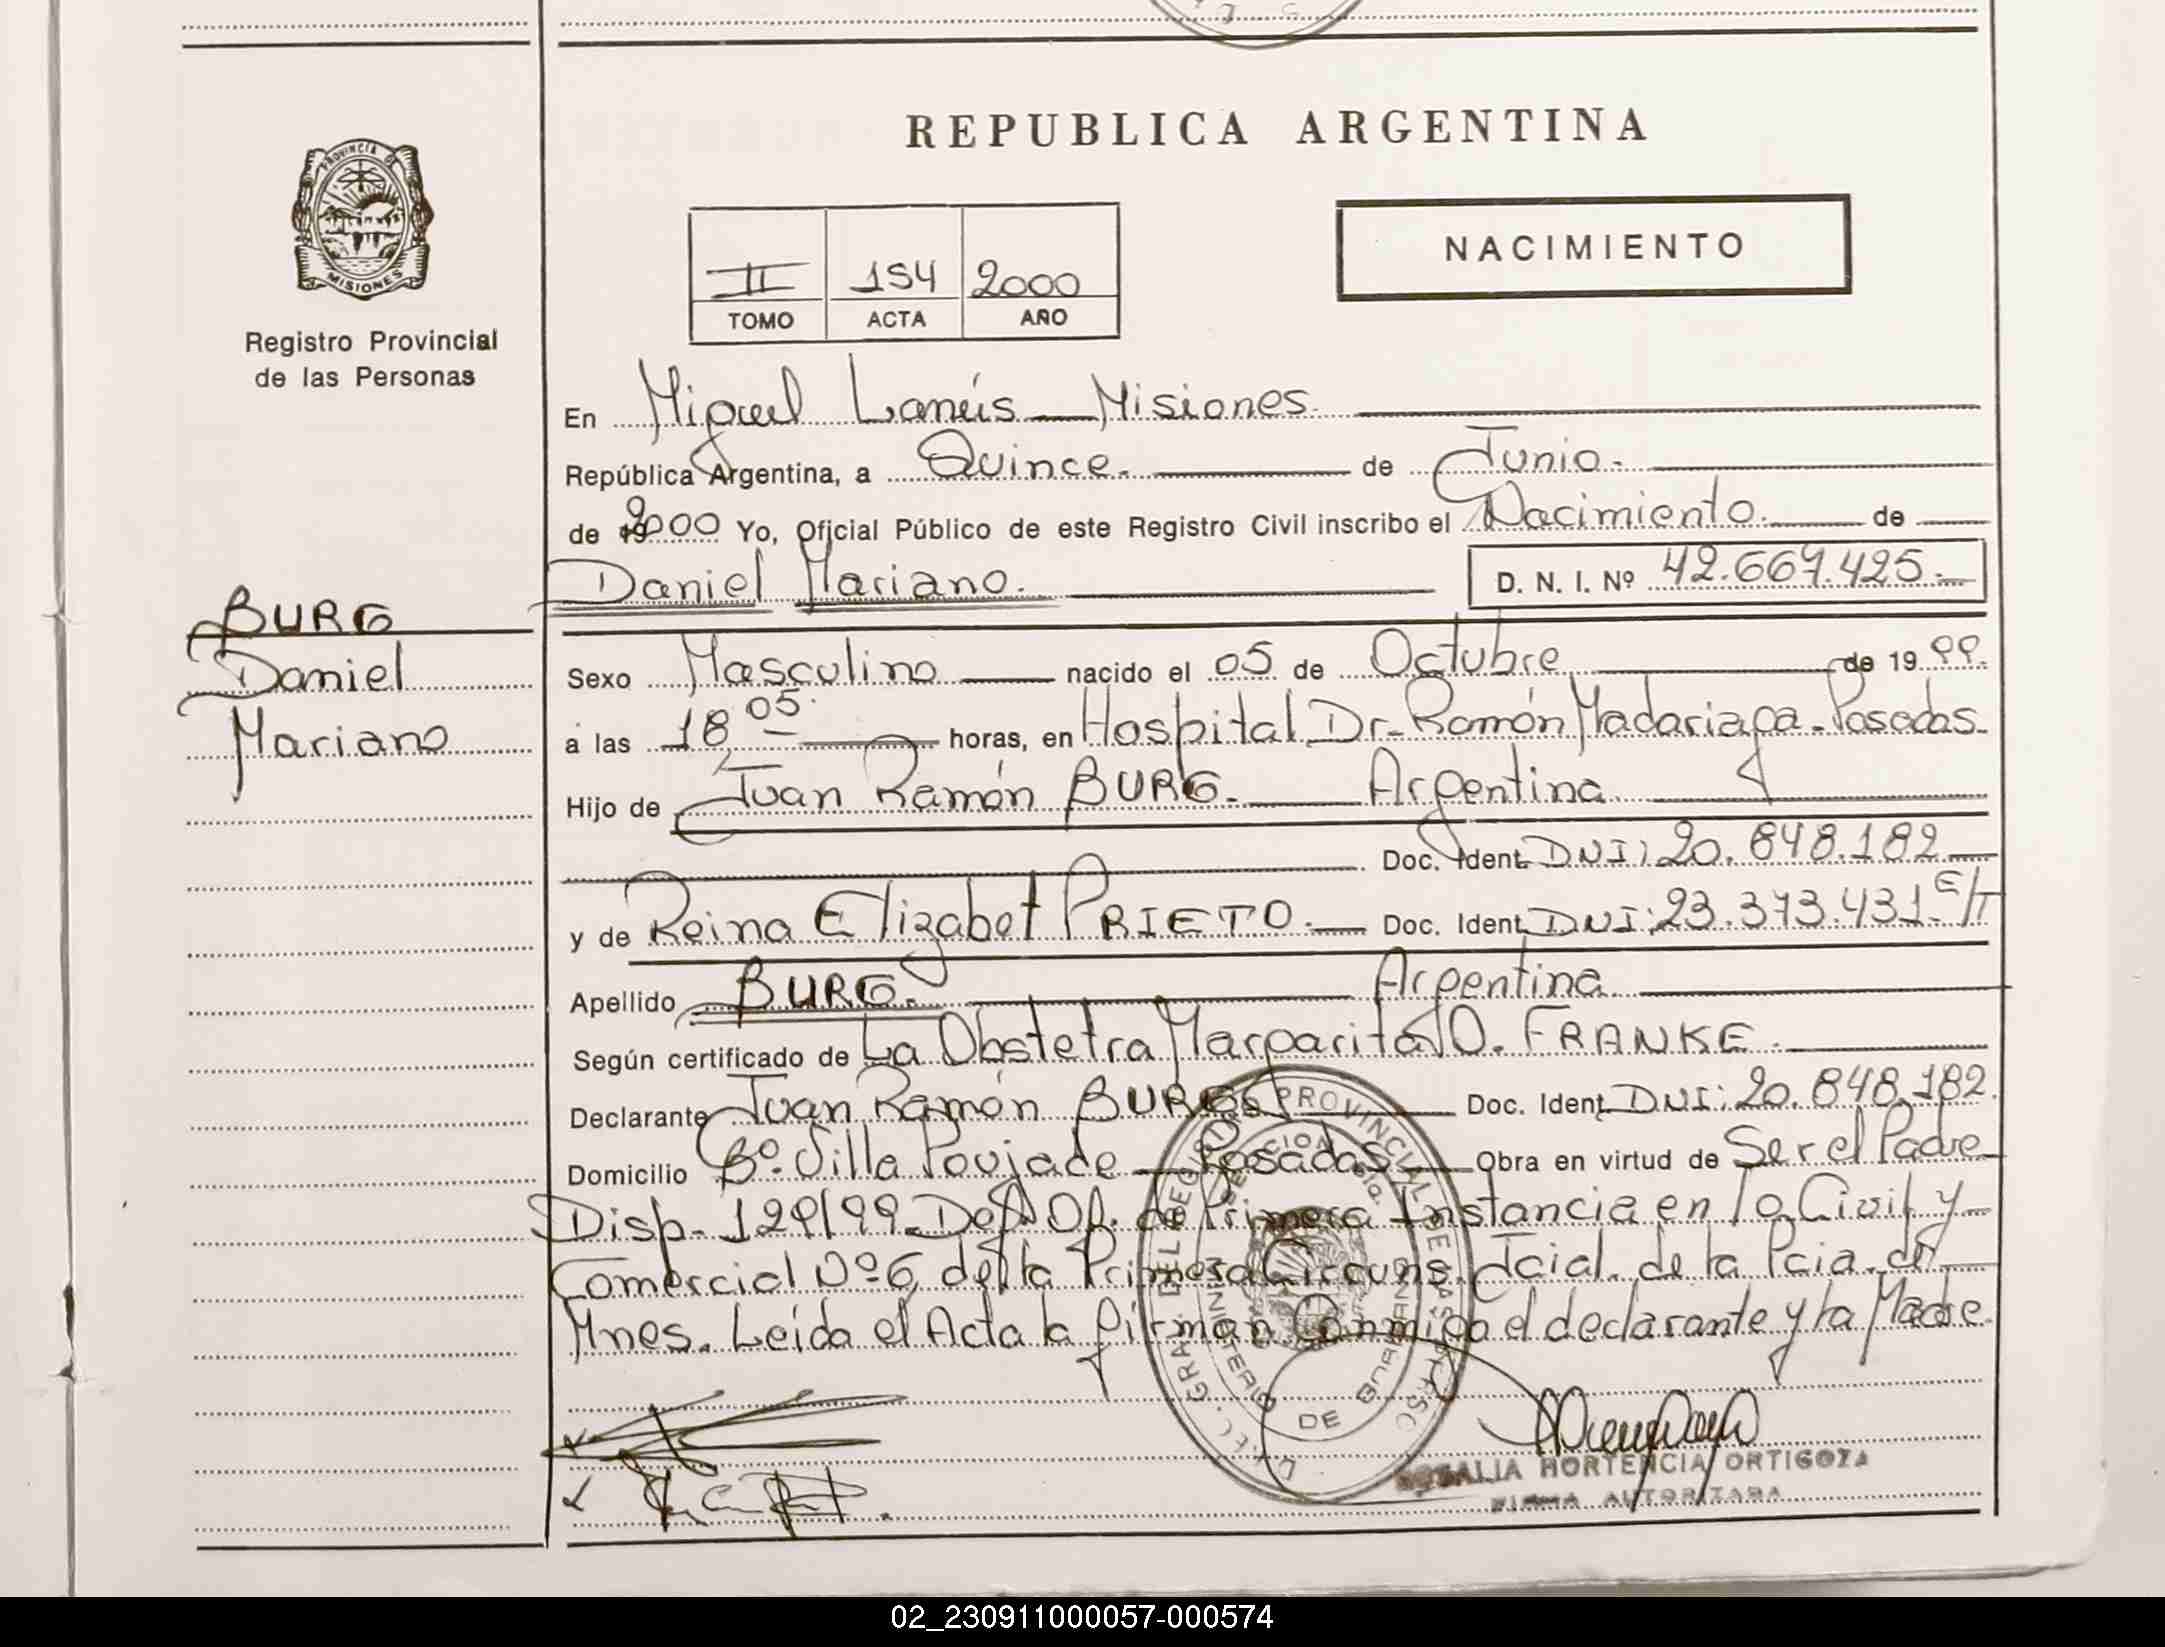 REPUBLICA ARGENTINA
PROVINCIA DE
MISIONES
Registro Provincial
de las Personas
II 154 2000
TOMO ACTA AÑO
NACIMIENTO
En Miguel Lanús — Misiones.
República Argentina, a Quince. de Junio.
de 2000 Yo, Oficial Público de este Registro Civil inscribo el Nacimiento. de
Daniel Mariano.
D. N. I. Nº 42.667.425.-
BURG
Daniel
Mariano
Sexo Masculino nacido el 05 de Octubre de 19 99.
a las 18 05. horas, en Hospital Dr. Ramón Madariaga - Posadas.
Hijo de Juan Ramón BURG. Argentina
Doc. Ident. DNI: 20.848.182
y de Reina Elizabet PRIETO. Doc. Ident. DNI: 23.373.431 E/T
Apellido BURG. Argentina
Según certificado de La Obstetra Margarita O. FRANKE.
Declarante Juan Ramón BURG Doc. Ident. DNI: 20.848.182.
Domicilio Bº. Villa Poujade — Posadas Obra en virtud de Ser el Padre
Disp. 129/99. Def. Of. de Primera Instancia en lo Civil y
Comercial Nº 6 de la Primera Circuns. Jcial. de la Pcia. de
Mnes. Leída el Acta la firman Conmigo el declarante y la Madre.
ROSALIA HORTENCIA ORTIGOZA
FIRMA AUTORIZADA
02_230911000057-000574